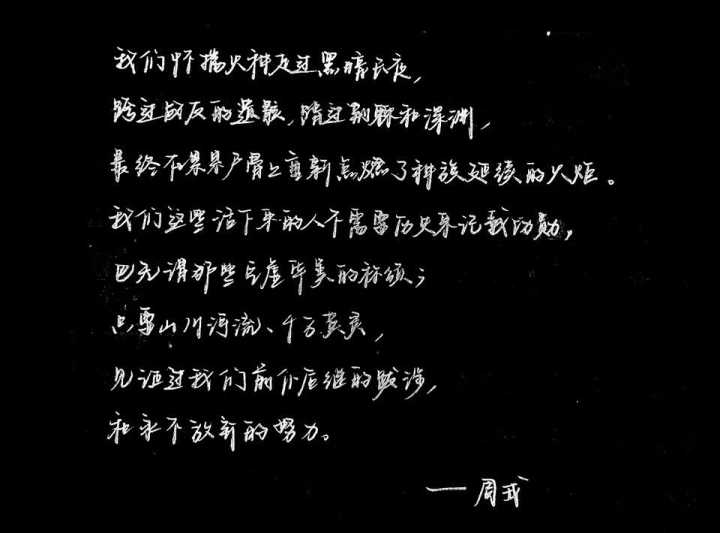 我们怀揣火种走过黑暗长夜,
跨过战友的遗骸,蹚过荆棘和深渊,
最终在累累尸骨上重新点燃了种族延续的火炬。
我们这些活下来的人不需要历史来记载功勋,
也无谓那些 华美的称颂;
只要山川河流、千万英灵,
见证过我们前仆后继的跋涉,
和永不放弃的努力。
——周戎